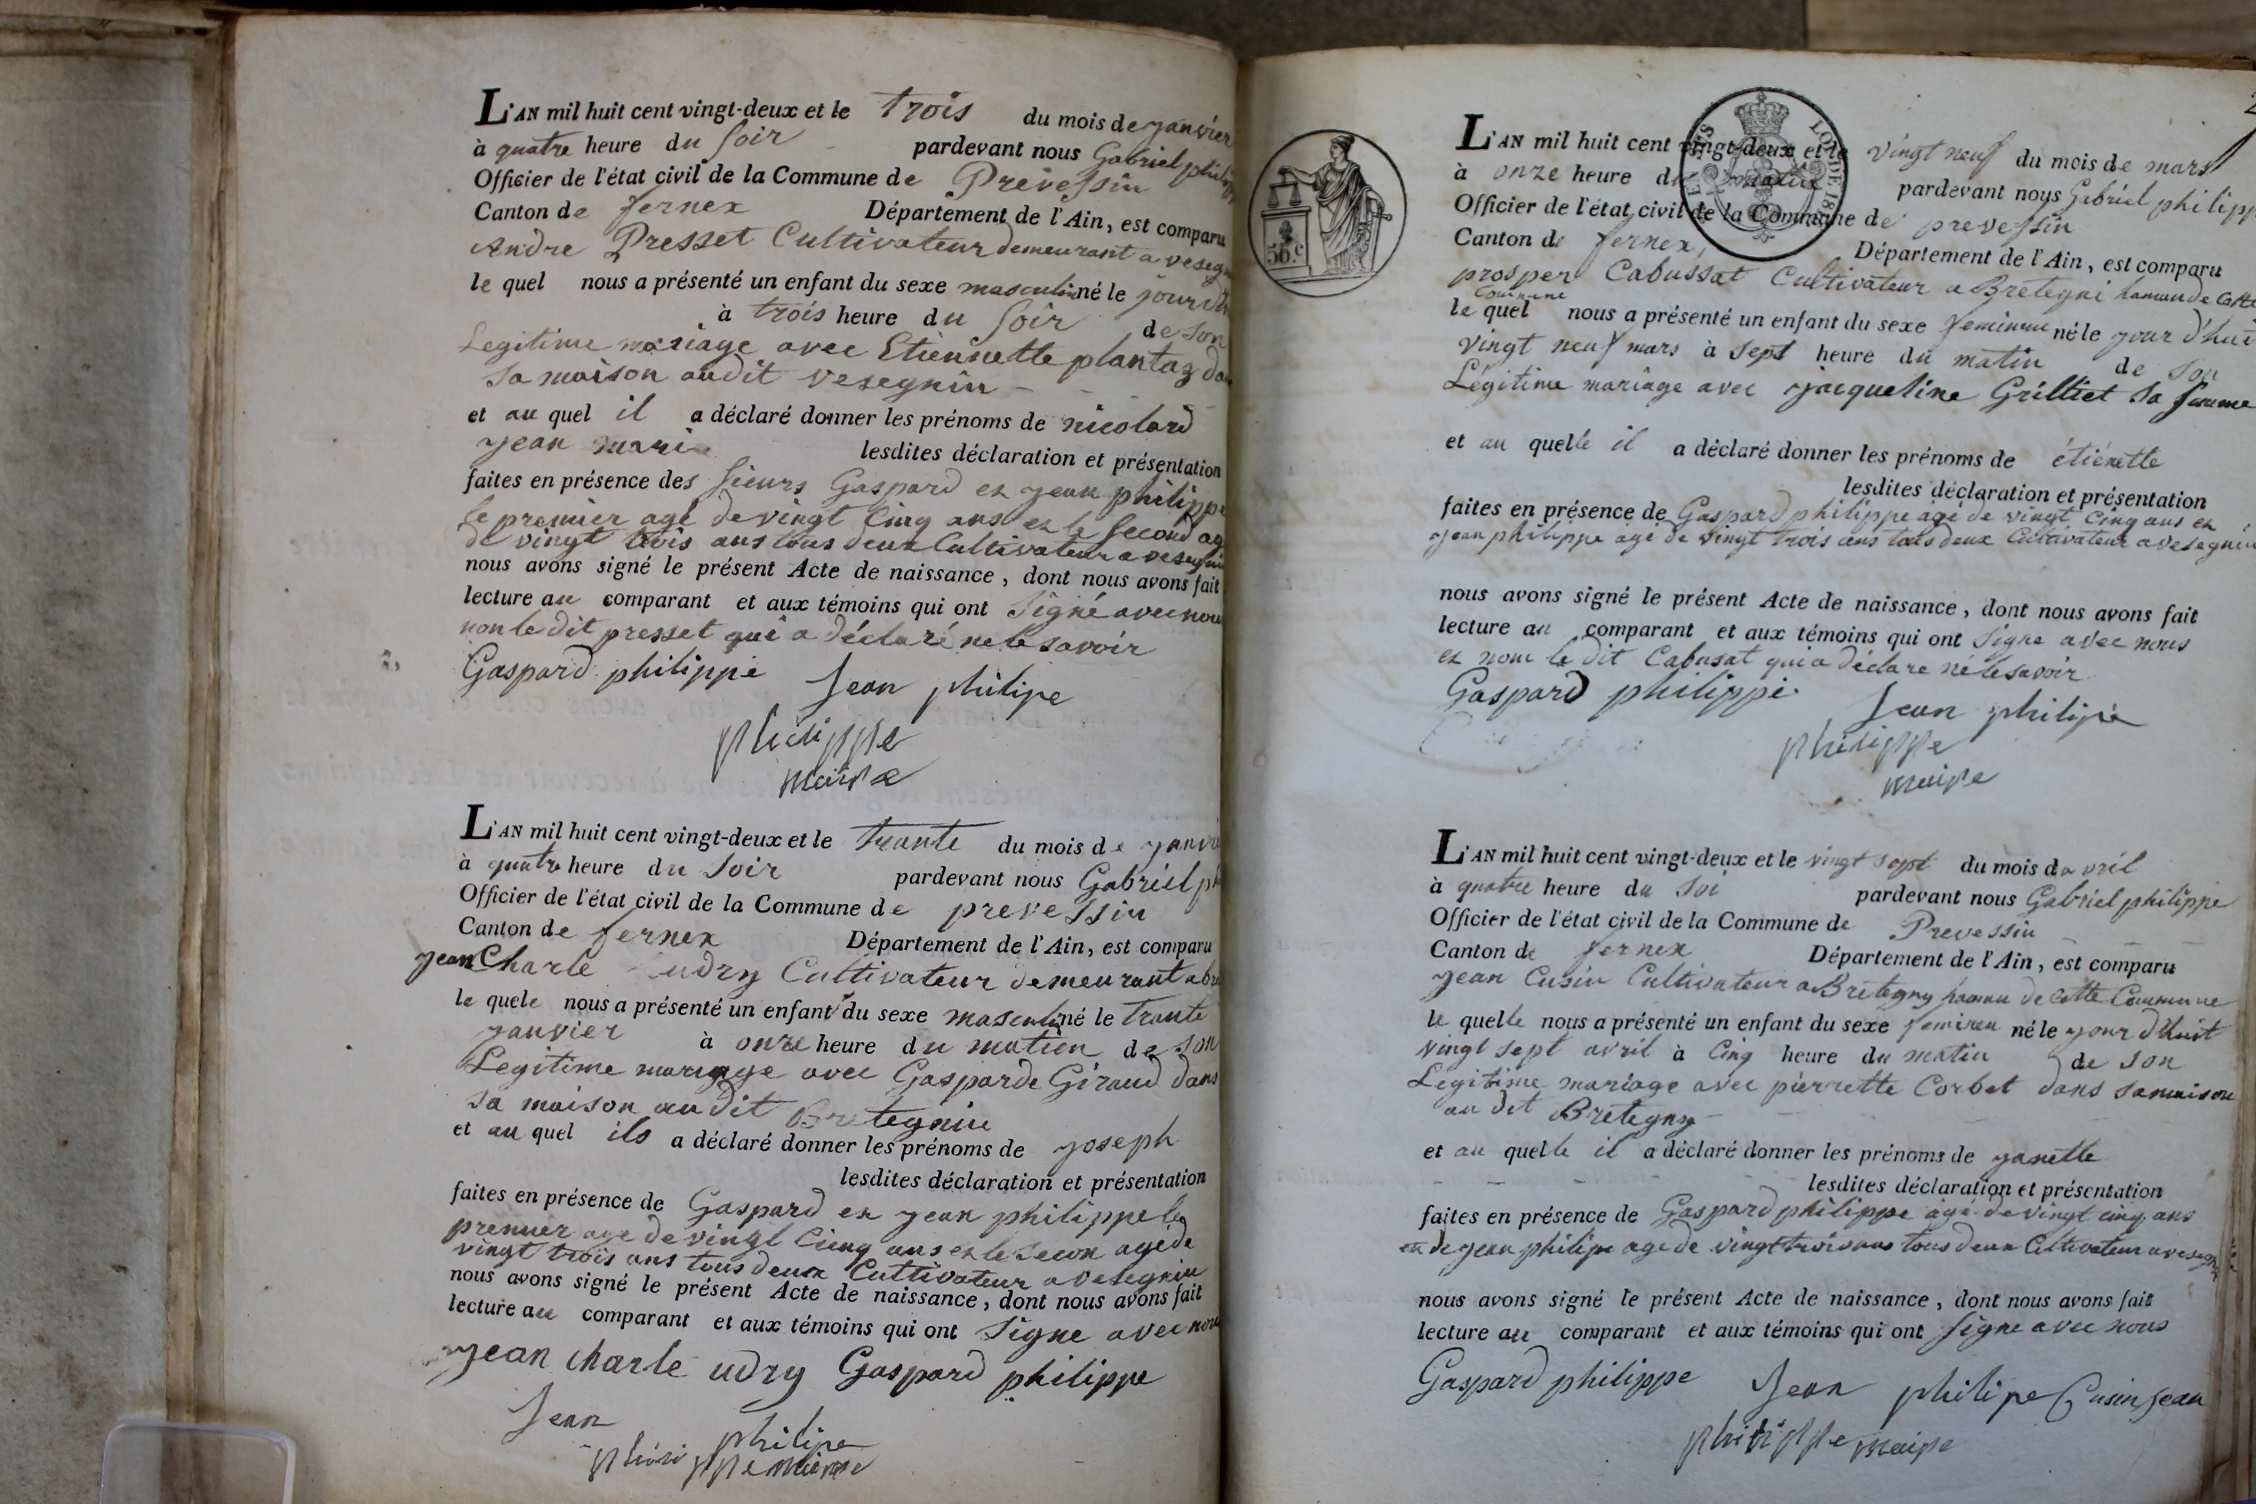 L'AN mil huit cent vingt-deux et le trois du mois de janvier
à quatre heure du soir pardevant nous Gabriel philippe
Officier de l'état civil de la Commune de Prevessin
Canton de fernex Département de l'Ain, est comparu
Andre Presset Cultivateur demeurant a
le quel nous a présenté un enfant du sexe masculin né le jour
à trois heure du soir de son
Legitime mariage avec Etiennette plantaz
sa maison audit vesegnin
et au quel il a déclaré donner les prénoms de nicolard
jean mari lesdites déclaration et présentation
faites en présence des sieurs Gaspard ex jean philippe
le premier agé de vingt cinq ans ex le second
de vingt trois ans tous deux Cultivateur a
nous avons signé le présent Acte de naissance, dont nous avons fait
lecture au comparant et aux témoins qui ont signé avec nous
non le dit presset qui a déclaré ne le savoir
Gaspard philippe Jean philipe
philippe
maire
L'AN mil huit cent vingt-deux et le trante du mois de
à quatre heure du soir pardevant nous Gabriel
Officier de l'état civil de la Commune de prevessin
Canton de fernex Département de l'Ain, est comparu
jean Charle udry Cultivateur demeurant
le quele nous a présenté un enfant du sexe masculin né le trante
janvier à onze heure du matien de son
Legitime mariage avec Gasparde Giraud dans
sa maison audit Bretegnin
et au quel ils a déclaré donner les prénoms de joseph
lesdites déclaration et présentation
faites en présence de Gaspard ex jean philippe le
premier age de vingt cinq ans ex le secon age de
vingt trois ans tous deux Cultivateur a vesegnin
nous avons signé le présent Acte de naissance, dont nous avons fait
lecture au comparant et aux témoins qui ont signe avec nous
jean charle udry Gaspard philippe
Jean philipe
philippe maire
56.c
L'AN mil huit cent vingt-deux et le vingt neuf du mois de mars
à onze heure du matin pardevant nous Gabriel
Officier de l'état civil de la Commune de prevessin
Canton de fernex, Département de l'Ain, est comparu
prosper Cabussat Cultivateur a Bretegni hamau de Cette
Commune
le quel nous a présenté un enfant du sexe feminine né le jour d'hui
vingt neuf mars à sept heure du matin de son
Legitime mariage avec jacqueline Grilliet sa femme
et au quelle il a déclaré donner les prénoms de étiénette
lesdites déclaration et présentation
faites en présence de Gaspard philippe agé de vingt cinq ans ex
jean philippe agé de vingt trois ans tous deux Cultivateur a vesegnin
nous avons signé le présent Acte de naissance, dont nous avons fait
lecture au comparant et aux témoins qui ont signe avec nous
ex non le dit Cabusat qui a déclare né le savoir
Gaspard philippe Jean philipe
philippe
maire
L'AN mil huit cent vingt-deux et le vingt sept du mois d avril
à quatre heure du soi pardevant nous Gabriel philippe
Officier de l'état civil de la Commune de Prevessin
Canton de fernex Département de l'Ain, est comparu
jean Cusin Cultivateur a Bretegny hamau de Cette Commune
le quelle nous a présenté un enfant du sexe né le jour d'huit
vingt sept avril à Cinq heure du matin de son
Legitime mariage avec pierrette Corbet dans sa maison
au dit Bretegny
et au quelle il a déclaré donner les prénoms de janette
lesdites déclaration et présentation
faites en présence de Gaspard philippe agé de vingt cinq ans
ex de jean philipe age de vingt trois ans tous deux Cultivateur a
nous avons signé le présent Acte de naissance, dont nous avons fait
lecture au comparant et aux témoins qui ont signe avec nous
Gaspard philippe Jean philipe Cusin jean
philippe maire